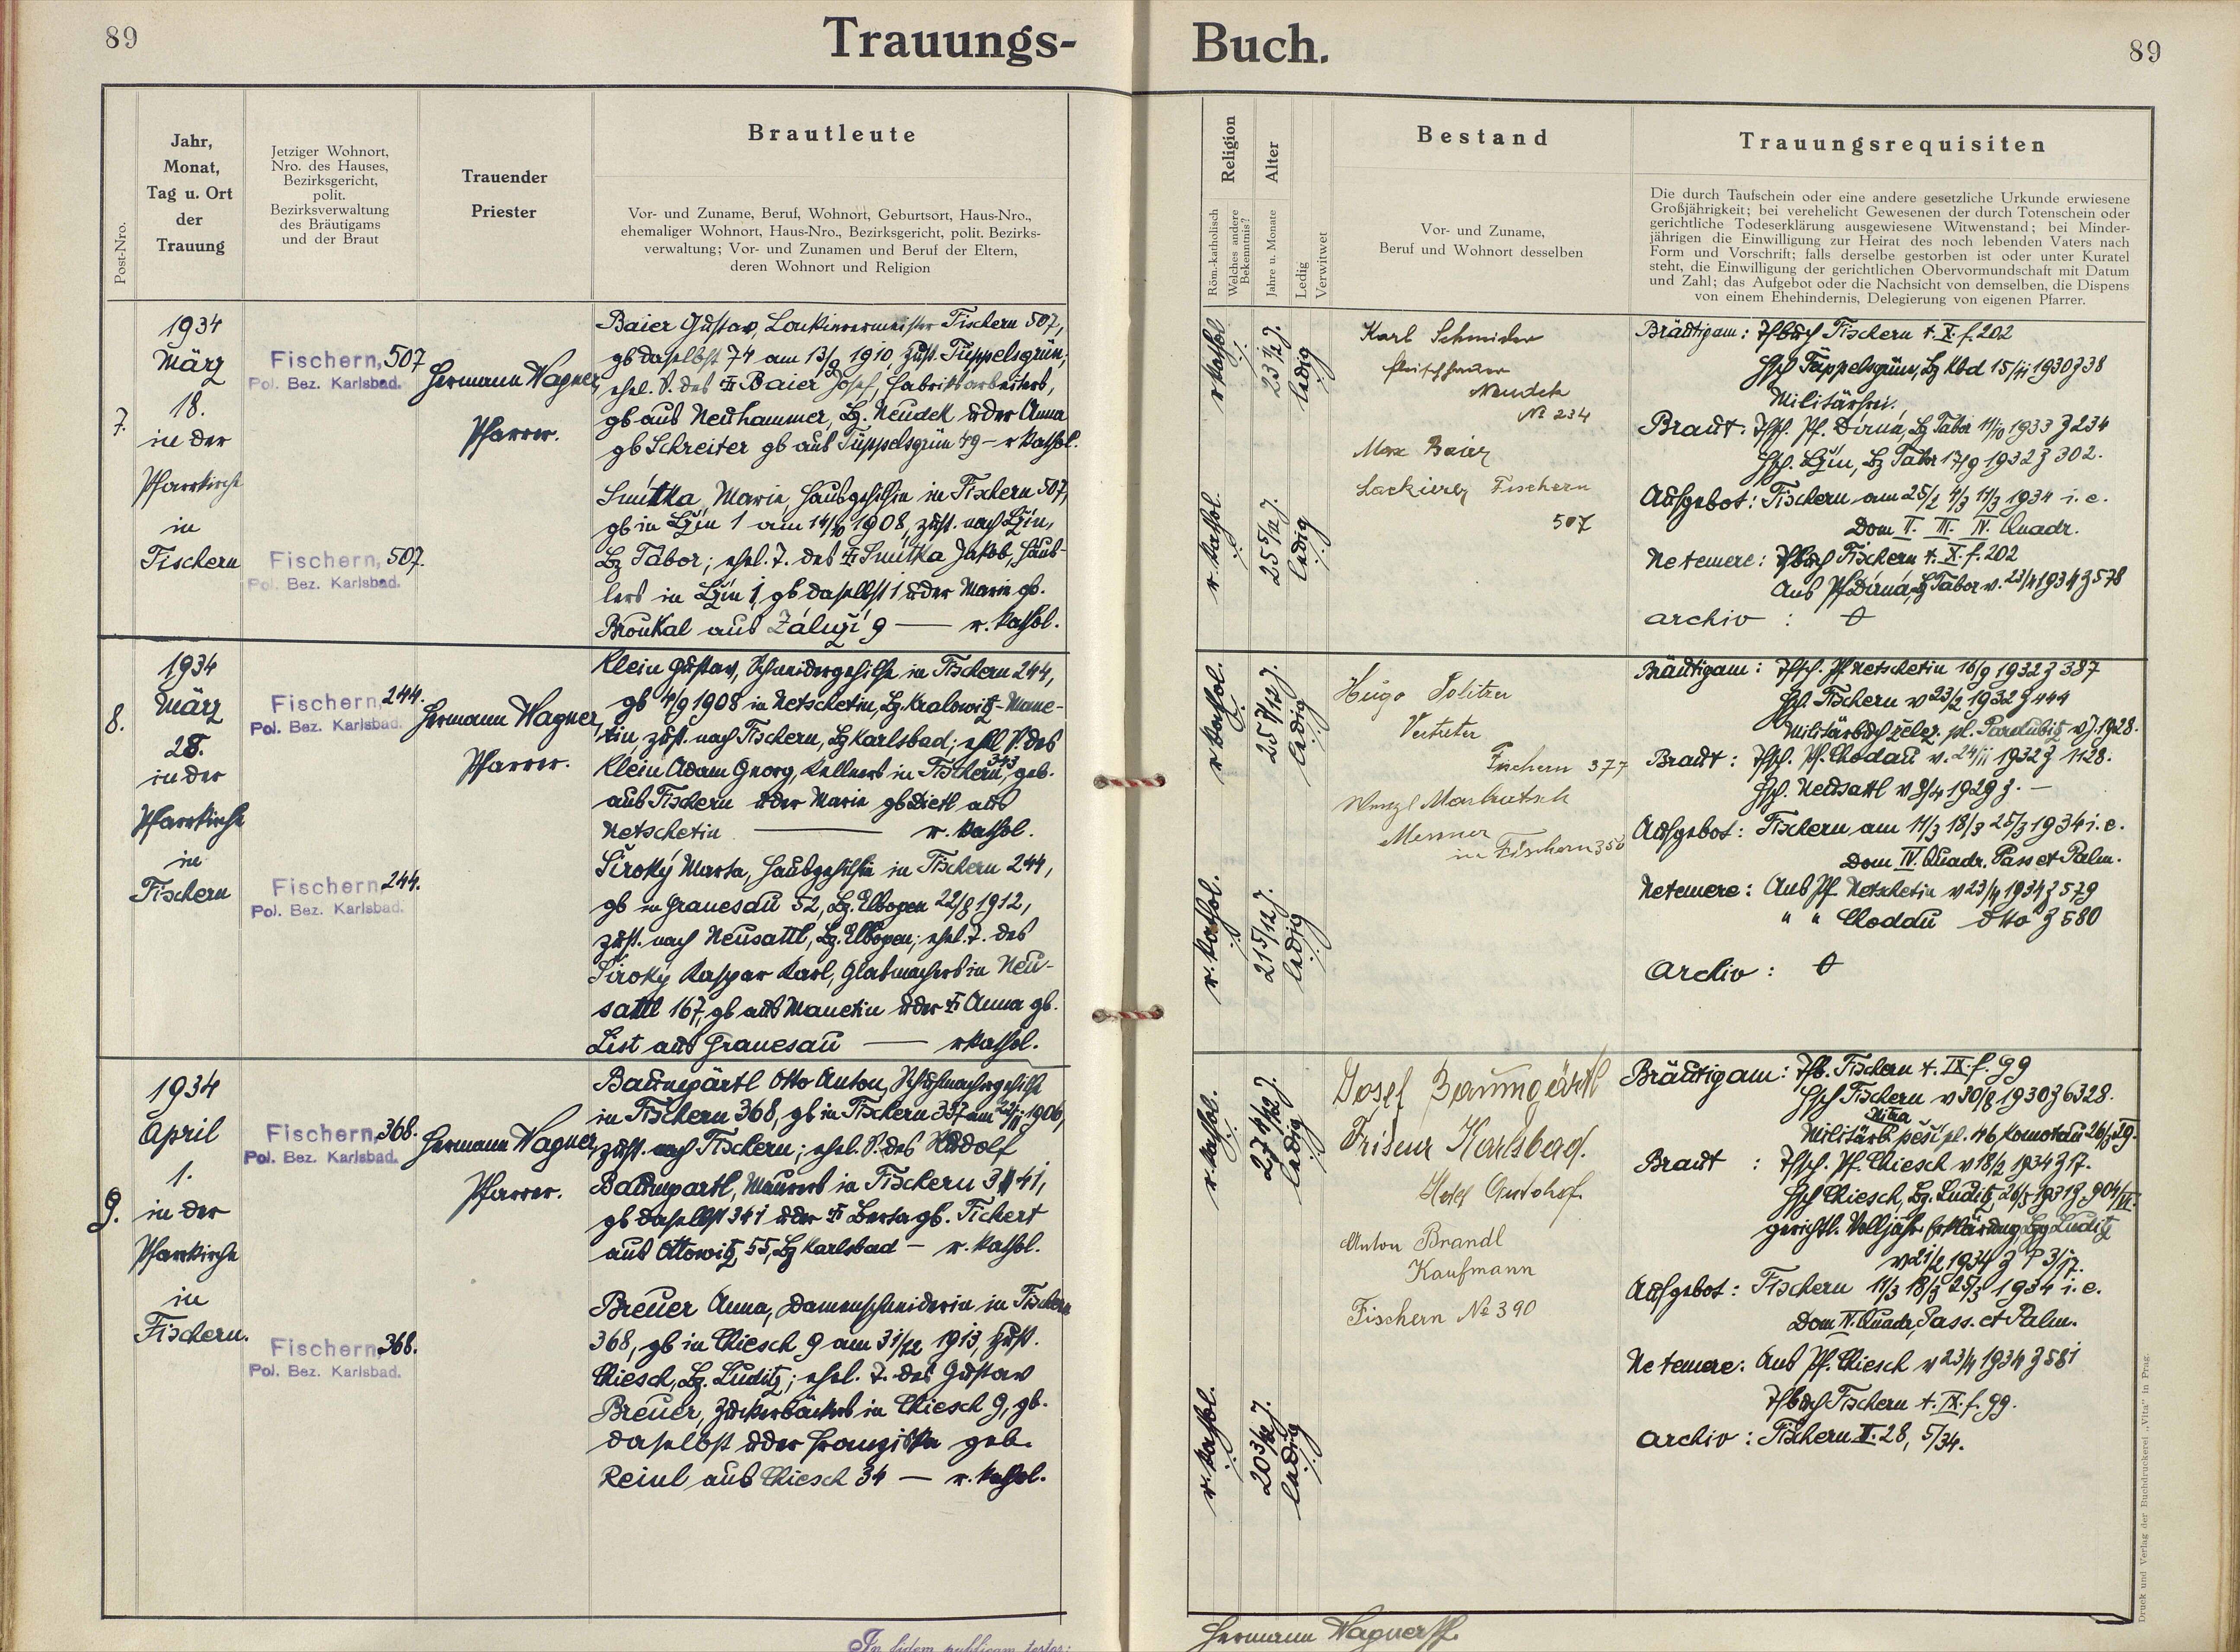 89
Trauungs-
Buch.
89
Post-Nro.
Jahr,
Monat,
Tag u. Ort
der
Trauung
Jetziger Wohnort,
Nro. des Hauses,
Bezirksgericht,
polit.
Bezirksverwaltung
des Bräutigams
und der Braut
Trauender
Priester
Brautleute
Vor- und Zuname, Beruf, Wohnort, Geburtsort, Haus-Nro.,
ehemaliger Wohnort, Haus-Nro., Bezirksgericht, polit. Bezirks-
verwaltung; Vor- und Zunamen und Beruf der Eltern,
deren Wohnort und Religion
Religion
Röm.-katholisch
Welches andere
Bekenntnis?
Alter
Jahre u. Monate
Ledig
Verwitwet
Bestand
Vor- und Zuname,
Beruf und Wohnort desselben
Trauungsrequisiten
Die durch Taufschein oder eine andere gesetzliche Urkunde erwiesene
Großjährigkeit; bei verehelicht Gewesenen der durch Totenschein oder
gerichtliche Todeserklärung ausgewiesene Witwenstand; bei Minder-
jährigen die Einwilligung zur Heirat des noch lebenden Vaters nach
Form und Vorschrift; falls derselbe gestorben ist oder unter Kuratel
steht, die Einwilligung der gerichtlichen Obervormundschaft mit Datum
und Zahl; das Aufgebot oder die Nachsicht von demselben, die Dispens
von einem Ehehindernis, Delegierung von eigenen Pfarrer.
7.
1934
März
18.
in der
Pfarrkirche
in
Fischern
Fischern, 507
Pol. Bez. Karlsbad.
Fischern, 507.
Pol. Bez. Karlsbad.
Hermann Wagner,
Pfarrer.
Baier Gustav, Lackierermeister Fischern 507,
gb daselbst 74 am 13/9 1910, zust. Tüppelsgrün,
ehel. S. des Baier Josef, Fabriksarbeiters,
gb aus Neuhammer, Bz. Neudek u der Anna
gb Schreiter gb aus Tüppelsgrün 49 – r kathol.
Smitka Marie, Hausgehilfin in Fischern 507,
gb in Lžín 1 am 14/10 1908, zust. nach Lžín,
Bz Tábor; ehel. T. des Smitka Jakob, Häus-
lers in Lžín 1, gb daselbst 1 u der Marie gb.
Broukal aus Záluží 9 — r. kathol.
r kathol
23 1/2 J.
ledig
r. kathol.
25 5/12 J.
ledig
Karl Schneider
Fleischhauer
Neudek
No 234
Max Baier
Lackierer Fischern
507
Bräutigam: Tfbuch Fischern t. X. f. 202
Hsch Tüppelsgrün, Bz Kbd 15/11 1930 Z 38
Militärfrei.
Braut: Tfsch. Pf. Dírná, Bz Tábor 11/10 1933 Z 234
Hsch. Lžín, Bz Tabor 17/9 1932 Z 302.
Aufgebot: Fischern am 25/2 4/3 11/3 1934 i. e.
Dom II. III. IV. Quadr.
Netemere: Tfbuch Fischern t. X. f. 202
Aus Pf Dírná, Bz Tabor v. 23/4 1934 Z 578
Archiv :
8.
1934
März
28.
in der
Pfarrkirche
in
Fischern
Fischern, 244.
Pol. Bez. Karlsbad.
Fischern 244.
Pol. Bez. Karlsbad.
Hermann Wagner,
Pfarrer.
Klein Gustav, Schneidergehilfe in Fischern 244,
gb 4/9 1908 in Netschetin, Bz. Kralowitz-Mane-
tin, zust. nach Fischern, Bz Karlsbad; ehl S. des
Klein Adam Georg, Kellners in Fischern 343, geb.
aus Fischern u der Marie gb Dietl aus
Netschetin — r. kathol.
Široký Marta, Hausgehilfin in Fischern 244,
gb in Granesau 52, Bz. Elbogen 22/8 1912,
zust. nach Neusattl, Bz. Elbogen; ehel. T. des
Široký Kaspar Karl, Glasmachers in Neu-
sattl 167, gb aus Manetin u der Anna gb.
List aus Granesau — r kathol.
r kathol.
25 7/12 J.
ledig
r. kathol.
21 5/12 J.
ledig
Hugo Politzer
Vertreter
Fischern 377
Wenzl
Messner
in Fischern 350
Bräutigam: Tfsch. Pf Netschetin 16/9 1932 Z 387
Hsch. Fischern v 23/2 1932 Z 444
Militärbuch želez. pl. Pardubitz v J. 1928.
Braut: Tfsch. Pf. Chodau v. 24/11 1932 Z 1128.
Hsch. Neusattl v 9/4 1929 Z. –
Aufgebot: Fischern am 11/3 18/3 25/3 1934 i. e.
Dom IV. Quadr. Pass et Palm.
Netemere: Aus Pf. Netschetin v 23/4 1934 Z 579
" " Chodau dto Z 580
Archiv :
9.
1934
April
1.
in der
Pfarrkirche
in
Fischern.
Fischern, 368.
Pol. Bez. Karlsbad.
Fischern 368.
Pol. Bez. Karlsbad.
Hermann Wagner,
Pfarrer.
Baumgärtl Otto Anton, Schuhmachergehilfe
in Fischern 368, gb in Fischern 337 am 22/11 1906,
zust. nach Fischern; ehel. S. des Rudolf
Baumgartl, Maurers in Fischern 341,
gb daselbst 341 u der Berta gb. Tichert
aus Ottowitz 55, Bz Karlsbad – r. kathol.
Breuer Anna, Damenschneiderin in Fischern
368, gb in Chiesch 9 am 31/12 1913, zust.
Chiesch, Bz. Luditz; ehel. T. des Gustav
Breuer, Zuckerbäckers in Chiesch 9, gb.
daselbst u der Franziska geb.
Reinl aus Chiesch 34 — r. kathol.
r. kathol.
27 4/12 J.
ledig
r. kathol.
20 3/12 J.
ledig
Josef Baumgärtl
Friseur Karlsbad.
Hotel
Anton Brandl
Kaufmann
Fischern No 390
Bräutigam: Tfb. Fischern t. IX. f. 99
Hsch Fischern v 30/8 1930 Z 6328.
Militärb. pěší pl. 46 Komotau 26/3 29.
Braut : Tfsch. Pf. Chiesch v 18/2 1934 Z 17.
Hsch Chiesch, Bz. Luditz 26/5 1931 Z 904/VI.
gerichtl. Volljähr. Erklärung Bzg Luditz
v 21/2 1934 Z P 31/17.
Aufgebot: Fischern 11/3 18/3 25/3 1934 i. e.
Dom IV. Quadr, Pass. et Palm.
Netemere: Aus Pf. Chiesch v 23/4 1934 Z 581
Tfbuch Fischern t. IX. f. 99.
Archiv : Fischern II. 28, 5/34.
In fidem publicam testor:
Hermann Wagner
Druck und Verlag der Buchdruckerei „Vita" in Prag.